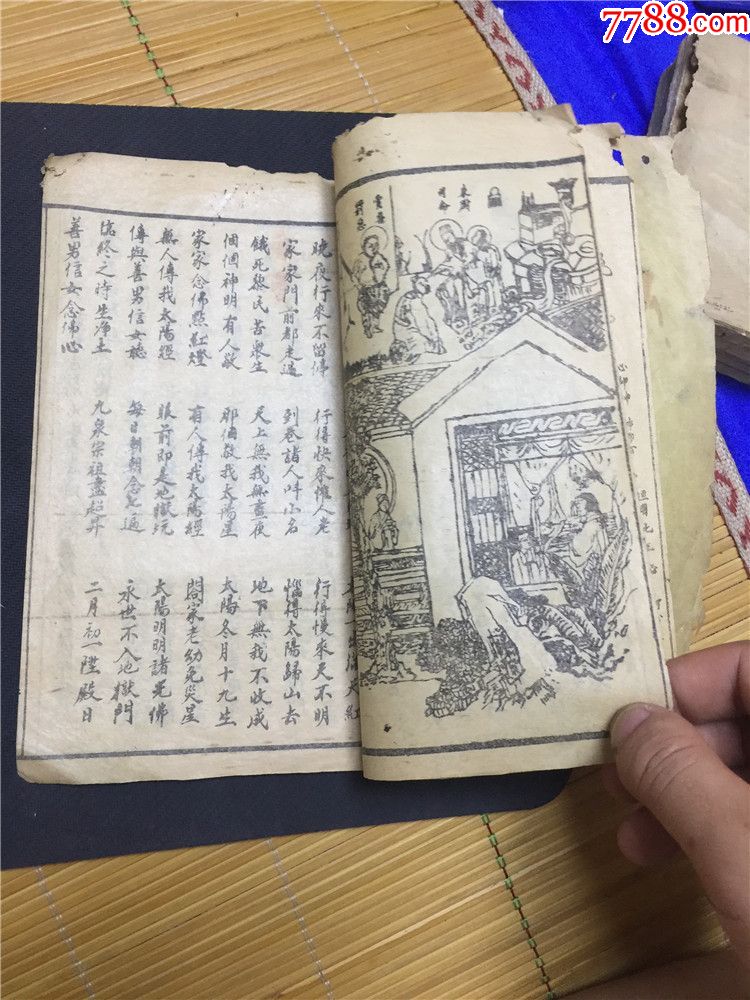 7788.com
晚夜行來不留停 行得快來催人老 行得慢來天不明
家家門前都走過 到巷諸人呌小名 惱得太陽歸山去
餓死黎民苦衆生 天上無我無晝夜 地下無我不收成
個個神明有人敬 那個敬我太陽星 太陽冬月十九生
家家念佛點紅燈 有人傳我太陽經 閤家老幼免災星
無人傳我太陽經 眼前即是地獄坑 太陽明明諸光佛
傳與善男信女聼 每日朝朝念七遍 永世不入地獄門
臨終之時生淨土 九泉宗祖盡超昇 二月初一陞殿日
善男信女念佛心
司命